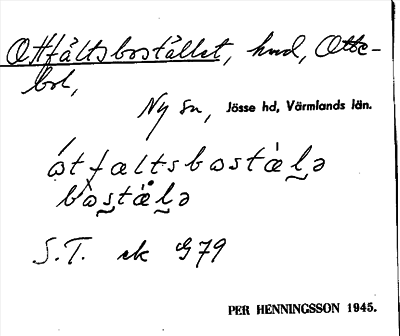 Ottfåltsbostället, hmd, Otte-
bol,
Ny sn, Jösse hd, Värmlands län.
ɷ́tfaltsbɷstæ̀l̠ə
bɷ̀s̠tæ̀l̠ə
S.T. ek G79
PER HENNINGSSON 1945.